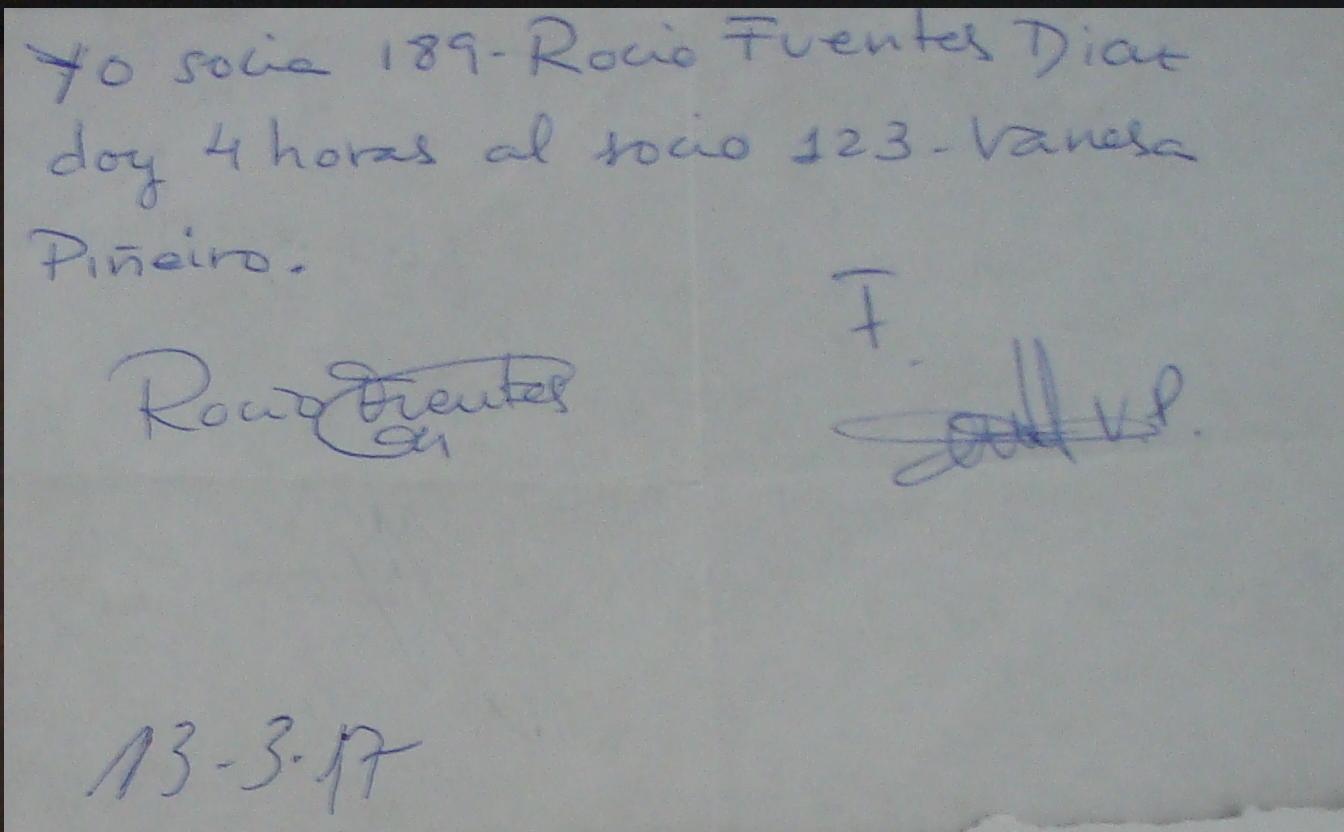 Yo socia 189-Rocio Fuentes Diaz
doy 4 horas al socio 123-Vanesa
Piñeiro.
F.
Rocio Fuentes
V.P.
13-3-17